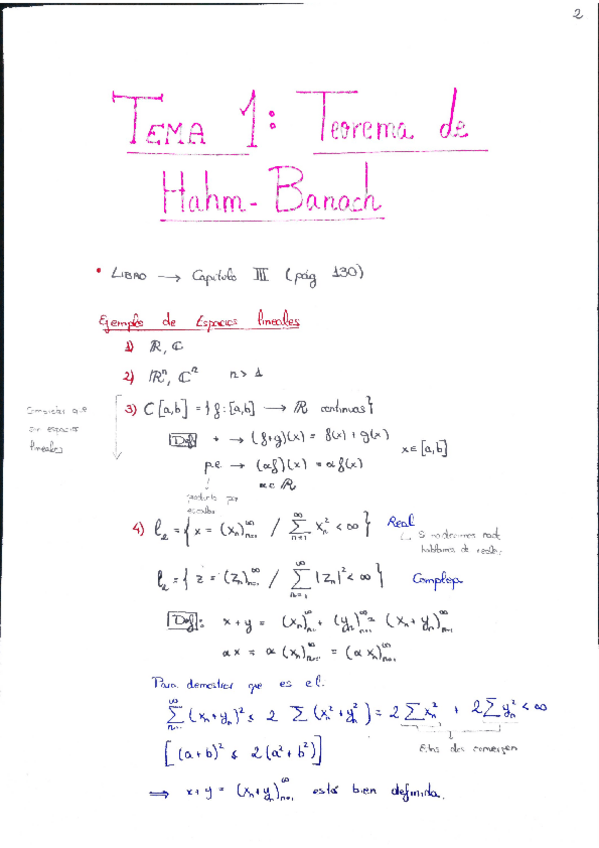 2
TEMA 1: Teorema de
Hahm-Banach
• LIBRO → Capítulo III (pág 130)
Ejemplos de Espacios lineales
1) ℝ, ℂ
2) ℝⁿ, ℂⁿ n > 1
3) C[a,b] = {f: [a,b] → ℝ continuas}
que
son espacios
lineales
Def + → (f+g)(x) = f(x) + g(x)
x ∈ [a,b]
p.e → (αf)(x) = αf(x)
α ∈ ℝ
↓
producto por
escalar
4) l₂ = { x = (xₙ)ₙ₌₁^∞ / ∑ₙ₌₁^∞ xₙ² < ∞ } Real
Si no decimos nada
hablamos de reales
l₂ = { z = (zₙ)ₙ₌₁^∞ / ∑ₙ₌₁^∞ |zₙ|² < ∞ } Complejo
Def: x + y = (xₙ)ₙ₌₁^∞ + (yₙ)ₙ₌₁^∞ = (xₙ + yₙ)ₙ₌₁^∞
αx = α (xₙ)ₙ₌₁^∞ = (α xₙ)ₙ₌₁^∞
Para demostrar que es e.l.
∑ₙ₌₁^∞ (xₙ+yₙ)² ≤ 2 ∑ (xₙ² + yₙ²) = 2 ∑ xₙ² + 2 ∑ yₙ² < ∞
[(a+b)² ≤ 2(a² + b²)]
Estas dos convergen
⟹ x+y = (xₙ+yₙ)ₙ₌₁^∞ está bien definida.